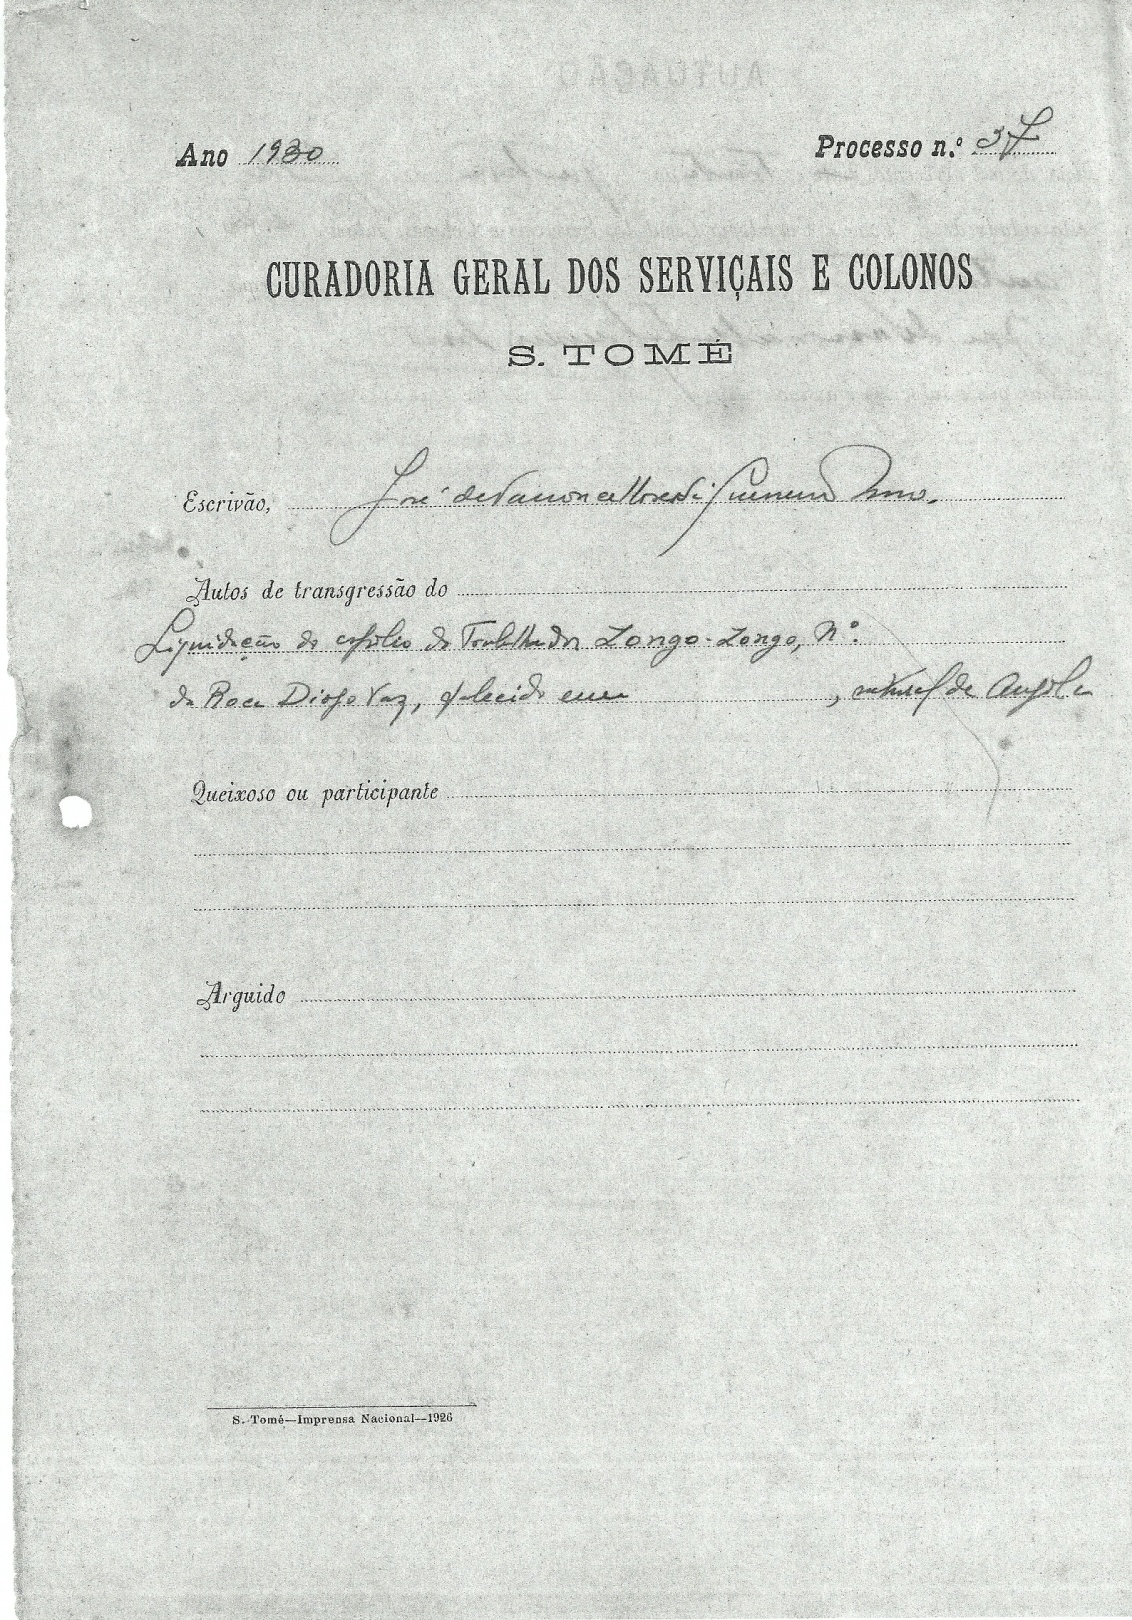 Ano 1930 Processo n.º 37
CURADORIA GERAL DOS SERVIÇAIS E COLONOS
S. TOMÉ
Escrivão, José de Vasconcellos
Autos de transgressão do
Liquidação do espólio do Trabalhador Zongo-Zongo, Nº.
da Roça Diogo Vaz, falecido em , natural de Angola
Queixoso ou participante
Arguido
S. Tomé—Imprensa Nacional—1926